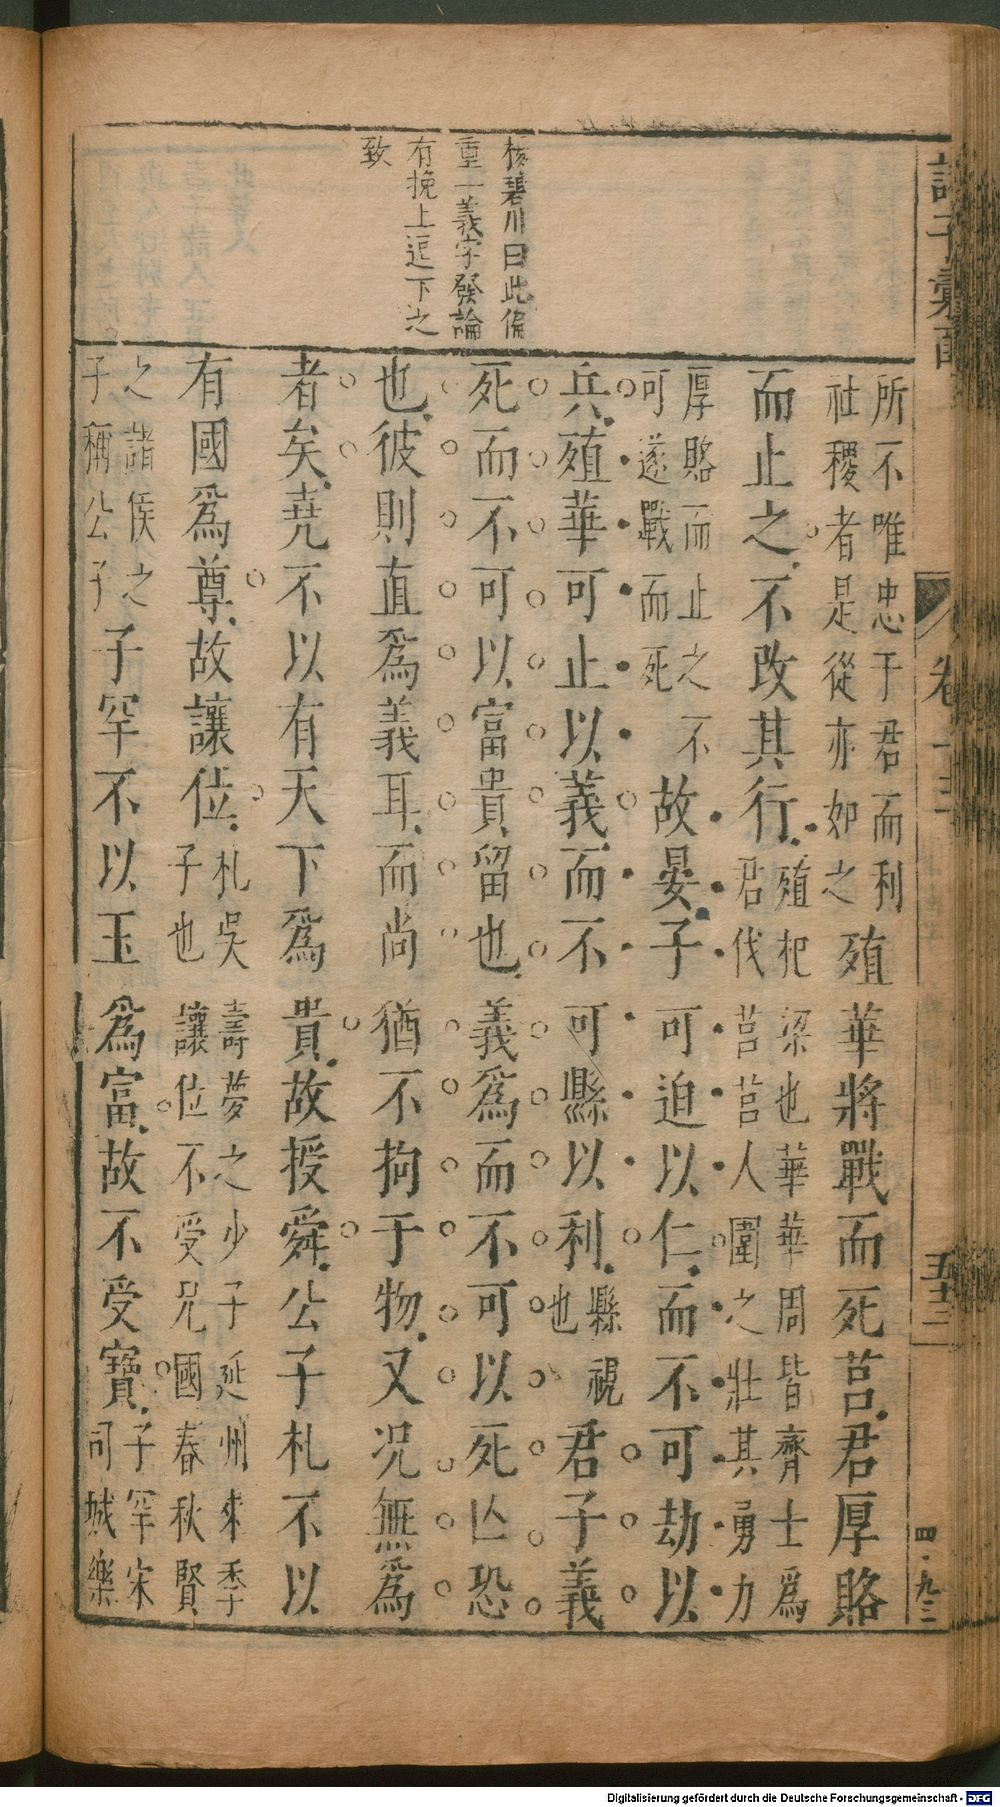 諸子彙函
五十三
四・九三
碧川曰此偏
重一義字發論
有挽上逗下之
致
所不唯忠于君而利
社稷者是從亦如之
殖華將戰而死莒君厚賂
而止之不改其行
殖杞梁也華華周皆齊士爲
君伐莒莒人圍之壯其勇力
厚賂而止之不
可遂戰而死
故晏子可迫以仁而不可劫以
兵殖華可止以義而不可縣以利
縣視
也
君子義
死而不可以富貴留也義爲而不可以死亾恐
也彼則直爲義耳而尚猶不拘于物又况無爲
者矣堯不以有天下爲貴故授舜公子札不以
有國爲尊故讓位
札吳壽夢之少子延州來季
子也讓位不受兄國春秋賢
之諸侯之
子稱公子
子罕不以玉爲富故不受寶
子罕宋
司城樂
Digitalisierung gefördert durch die Deutsche Forschungsgemeinschaft - DFG